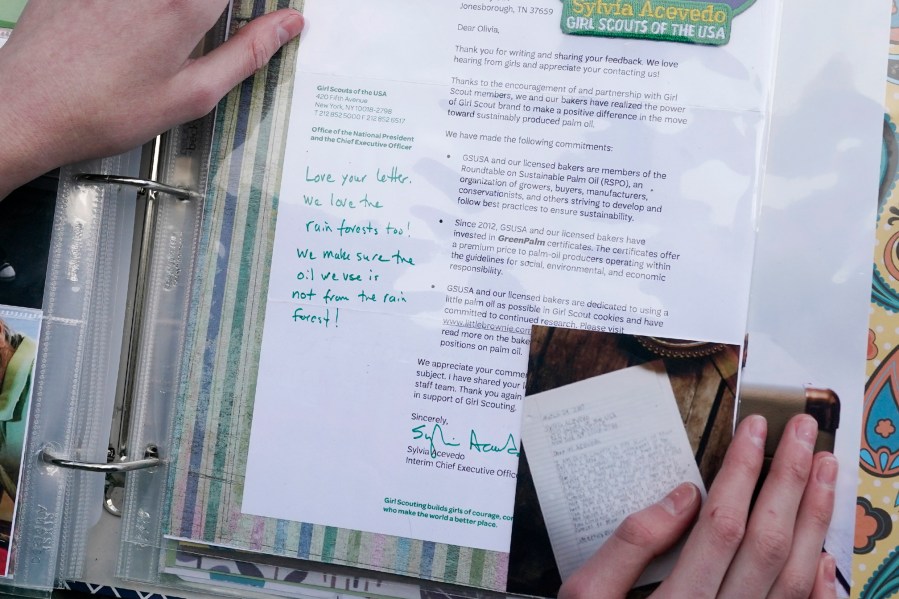 Jonesborough, TN 37659
Sylvia Acevedo
GIRL SCOUTS OF THE USA
Dear Olivia,
Thank you for writing and sharing your feedback. We love
hearing from girls and appreciate your contacting us!
Thanks to the encouragement of and partnership with Girl
Scout members, we and our bakers have realized the power
of Girl Scout brand to make a positive difference in the move
toward sustainably produced palm oil.
We have made the following commitments:
• GSUSA and our licensed bakers are members of the
Roundtable on Sustainable Palm Oil (RSPO), an
organization of growers, buyers, manufacturers,
conservationists, and others striving to develop and
follow best practices to ensure sustainability.
• Since 2012, GSUSA and our licensed bakers have
invested in GreenPalm certificates. The certificates offer
a premium price to palm-oil producers operating within
the guidelines for social, environmental, and economic
responsibility.
• GSUSA and our licensed bakers are dedicated to using a
little palm oil as possible in Girl Scout cookies and have
committed to continued research. Please visit
www.littlebrownie.com
read more on the bake
positions on palm oil.
We appreciate your comme
subject. I have shared your
staff team. Thank you again
in support of Girl Scouting.
Sincerely,
Sylvia Acevedo
Sylvia Acevedo
Interim Chief Executive Office
Girl Scouting builds girls of courage, con
who make the world a better place.
Girl Scouts of the USA
420 Fifth Avenue
New York, NY 10018-2798
T 212 852 5000 F 212 852 6517
Office of the National President
and the Chief Executive Officer
Love your letter.
We love the
rain forests too!
We make sure the
oil we use is
not from the rain
forest!